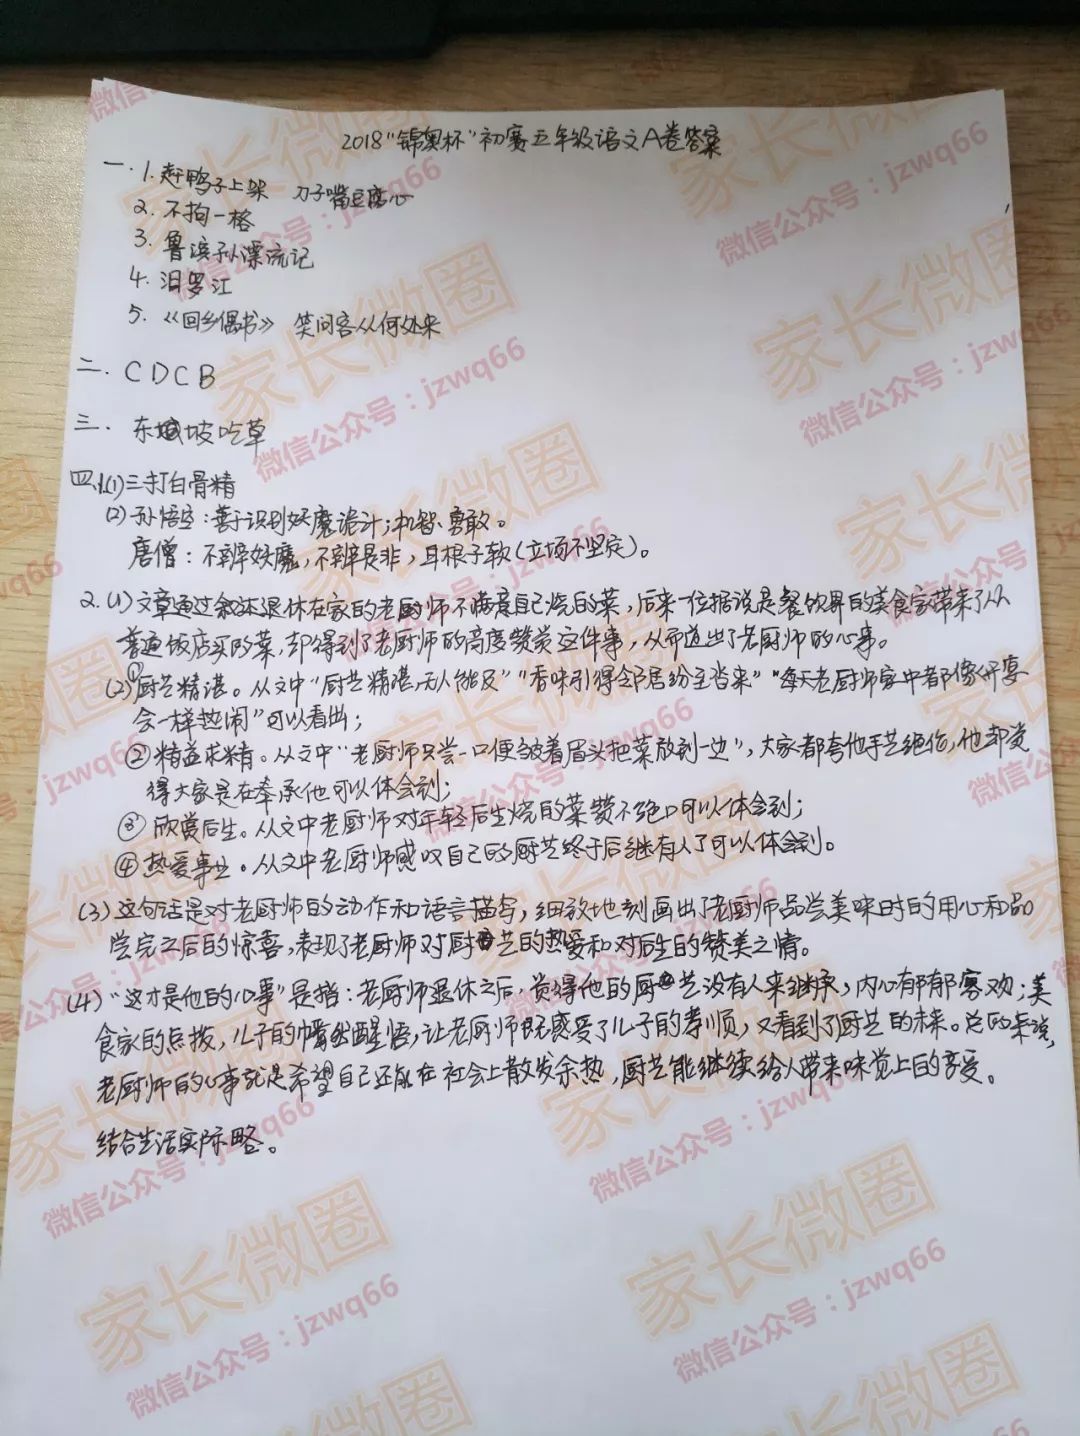 2018"锦奥杯"初赛五年级语文A卷答案
一.1.赶鸭子上架 刀子嘴豆腐心
2.不拘一格
3.鲁滨孙漂流记
4.汨罗江
5.《回乡偶书》 笑问客从何处来
二.CDCB
三.东坡吃草
四.1.(1)三打白骨精
(2)孙悟空:善于识别妖魔诡计;机智、勇敢。
唐僧:不辨妖魔,不辨是非,耳根子软(立场不坚定)。
2.(1)文章通过叙述退休在家的老厨师不满意自己烧的菜,后来一位据说是餐饮界的美食家带来了从
普通饭店买的菜,却得到了老厨师的高度赞赏这件事,从而道出了老厨师的心事。
(2)①厨艺精湛。从文中"厨艺精湛,无人能及""香味引得邻居纷至沓来""每天老厨师家中都像开宴
会一样热闹"可以看出;
②精益求精。从文中"老厨师只尝一口便皱着眉头把菜放到一边",大家都夸他手艺绝伦,他却觉
得大家是在奉承他可以体会到;
③欣赏后生。从文中老厨师对年轻后生烧的菜赞不绝口可以体会到;
④热爱事业。从文中老厨师感叹自己的厨艺终于后继有人了可以体会到。
(3)这句话是对老厨师的动作和语言描写,细致地刻画出了老厨师品尝美味时的用心和品
尝完之后的惊喜,表现了老厨师对厨艺的热爱和对后生的赞美之情。
(4)"这才是他的心事"是指:老厨师退休之后,觉得他的厨艺没有人来继承,内心郁郁寡欢;美
食家的点拨,儿子的幡然醒悟,让老厨师既感受了儿子的孝顺,又看到了厨艺的未来。总的来说,
老厨师的心事就是希望自己还能在社会上散发余热,厨艺能继续给人带来味觉上的享受。
结合生活实际略。
家长微圈
微信公众号:jzwq66